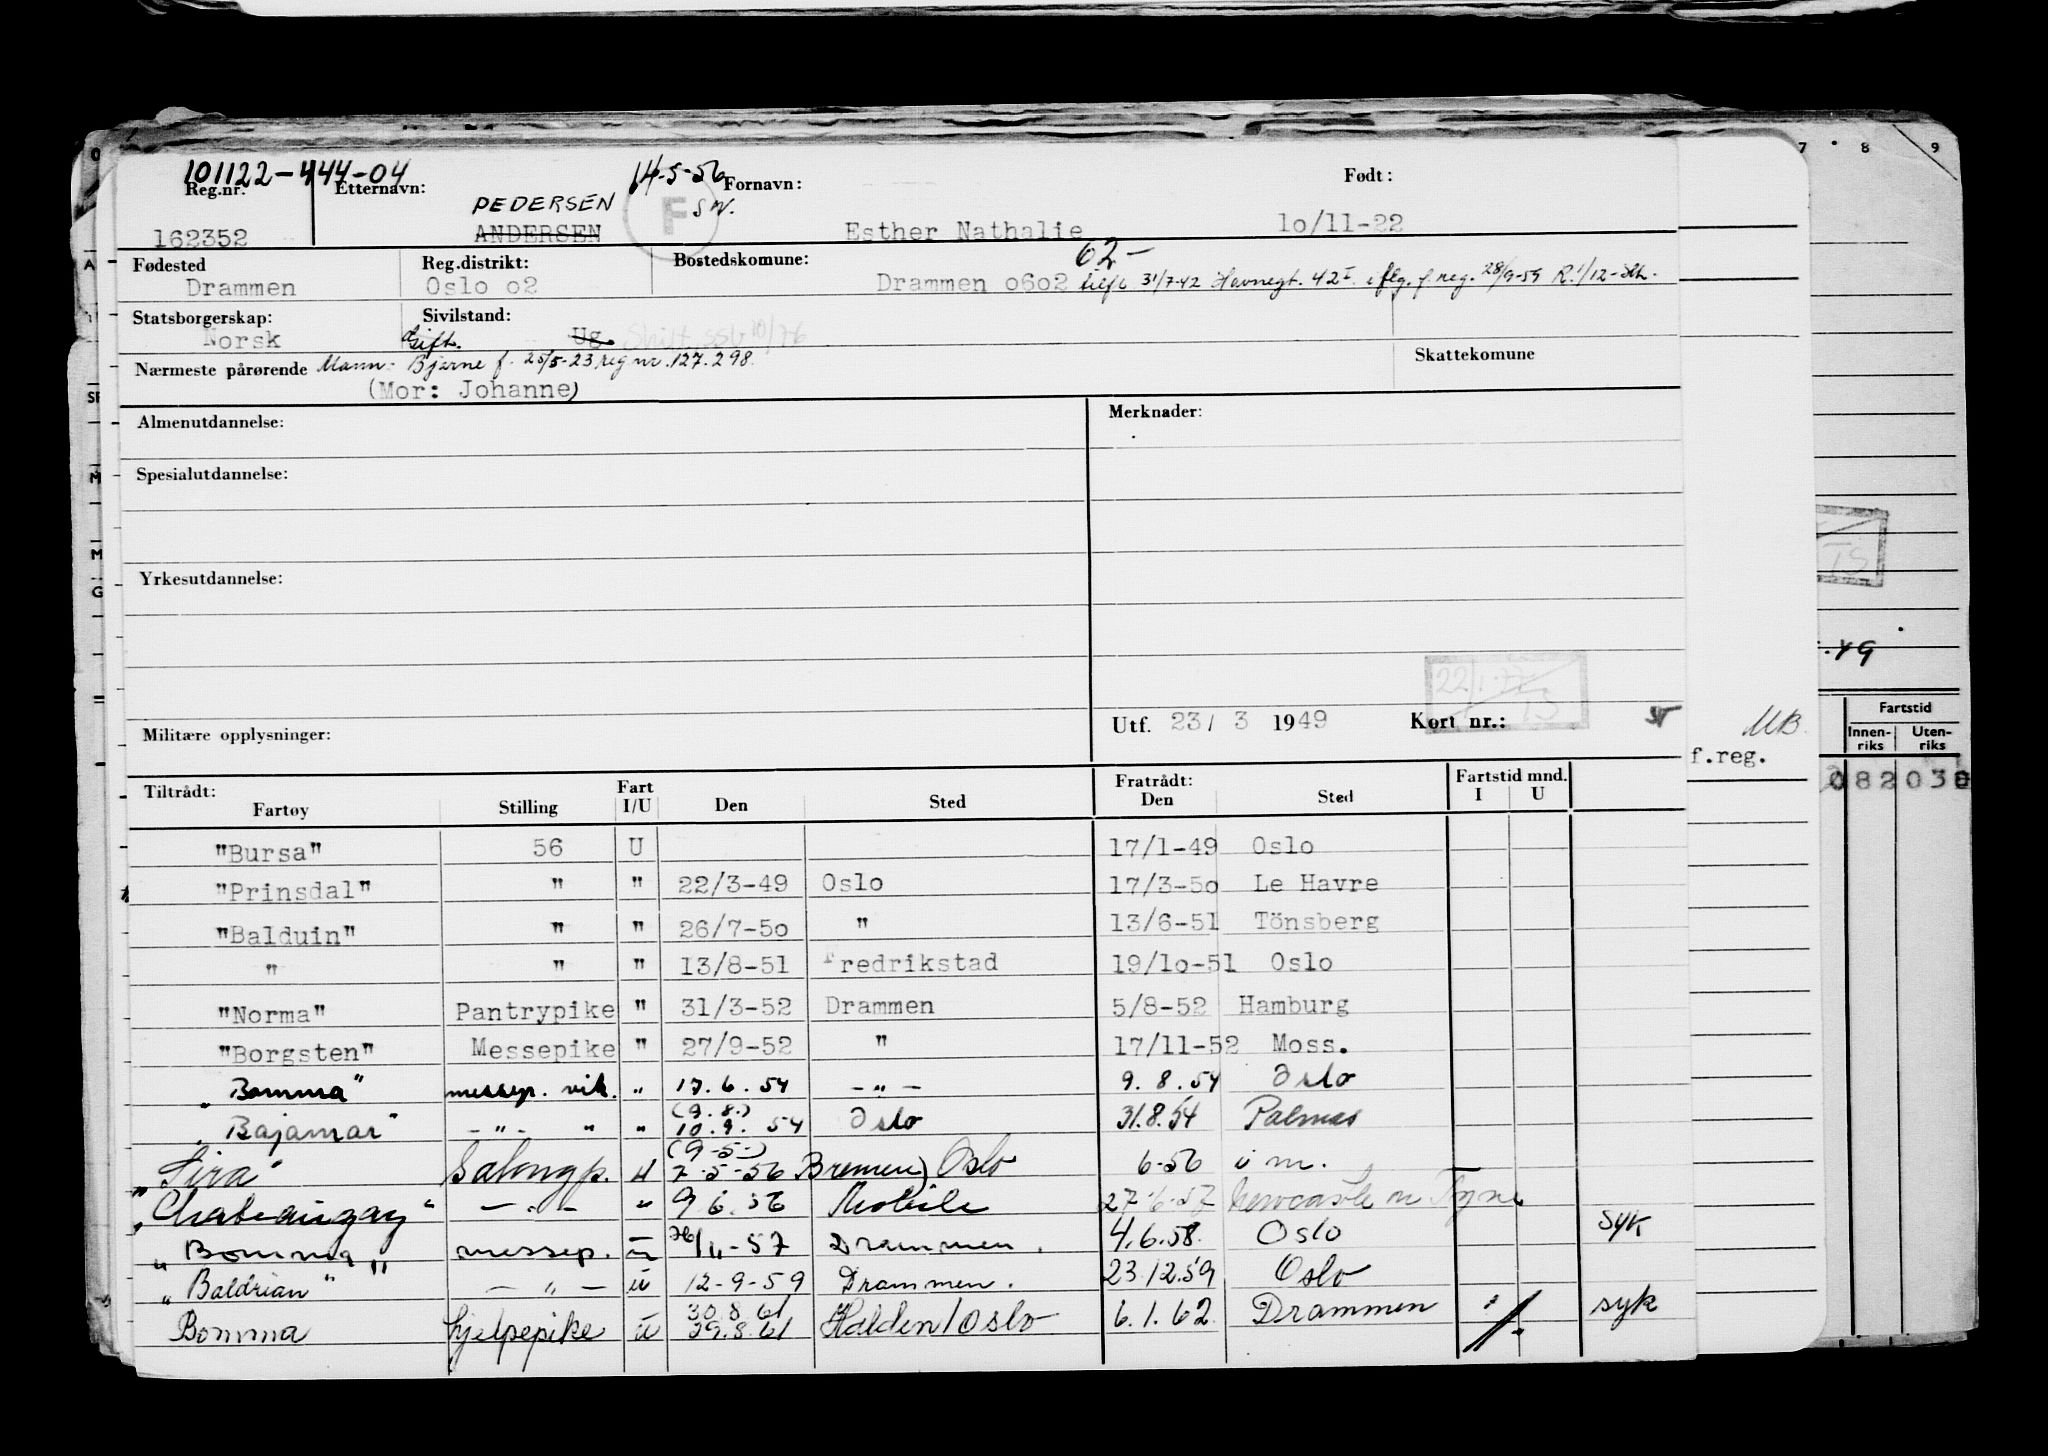 7 8 9
101122-444-04 14-5-56
Reg.nr. Etternavn: Fornavn: Født:
PEDERSEN F sw.
162352 ANDERSEN Esther Nathalie 10/11-22
62-
Fødested Reg.distrikt: Bostedskomune:
Drammen Oslo o2 Drammen o6o2 31/7-42 42 I f. reg. 28/9-59
Statsborgerskap: Sivilstand:
Norsk Gift. Ug. Skilt 10/76
Nærmeste pårørende Mann: Bjarne f. 25/5-23 reg nr. 127.298. Skattekomune
(Mor: Johanne)
Almenutdannelse: Merknader:
Spesialutdannelse:
Yrkesutdannelse:
Militære opplysninger: Utf. 23/ 3 1949 Kort nr.: 22/1-77
MB.
f.reg.
Fartstid
Innen-riks Uten-riks
Tiltrådt: Fart Fratrådt: Fartstid mnd.
Fartøy Stilling I/U Den Sted Den Sted I U
"Bursa" 56 U 17/1-49 Oslo
"Prinsdal" " " 22/3-49 Oslo 17/3-5o Le Havre
"Balduin" " " 26/7-5o " 13/6-51 Tönsberg
" " " 13/8-51 Fredrikstad 19/1o-51 Oslo
"Norma" Pantrypike " 31/3-52 Drammen 5/8-52 Hamburg
"Borgsten" Messepike " 27/9-52 " 17/11-52 Moss.
"Bomma" messep. vik. " 17.6.54 -"- 9.8.54 Oslo
"Bajamar" -"- " " (9.8.) 10.9.54 Oslo 31.8.54 Palmas
"Sira" Salongp. U (9-5-) 7-5-56 Bremen) Oslo 6-56 i m.
"Chateaugay" -"- " 9.6.56 Mobile 27-6-57 Newcastle on Tyne
"Bomma" messep. U 26/11-57 Drammen. 4.6.58. Oslo syk
"Baldrian" -"- U 12-9-59 Drammen. 23.12.59 Oslo
Bomma hjelpepike U 30.8.61 29.8.61 Halden/Oslo 6.1.62 Drammen syk